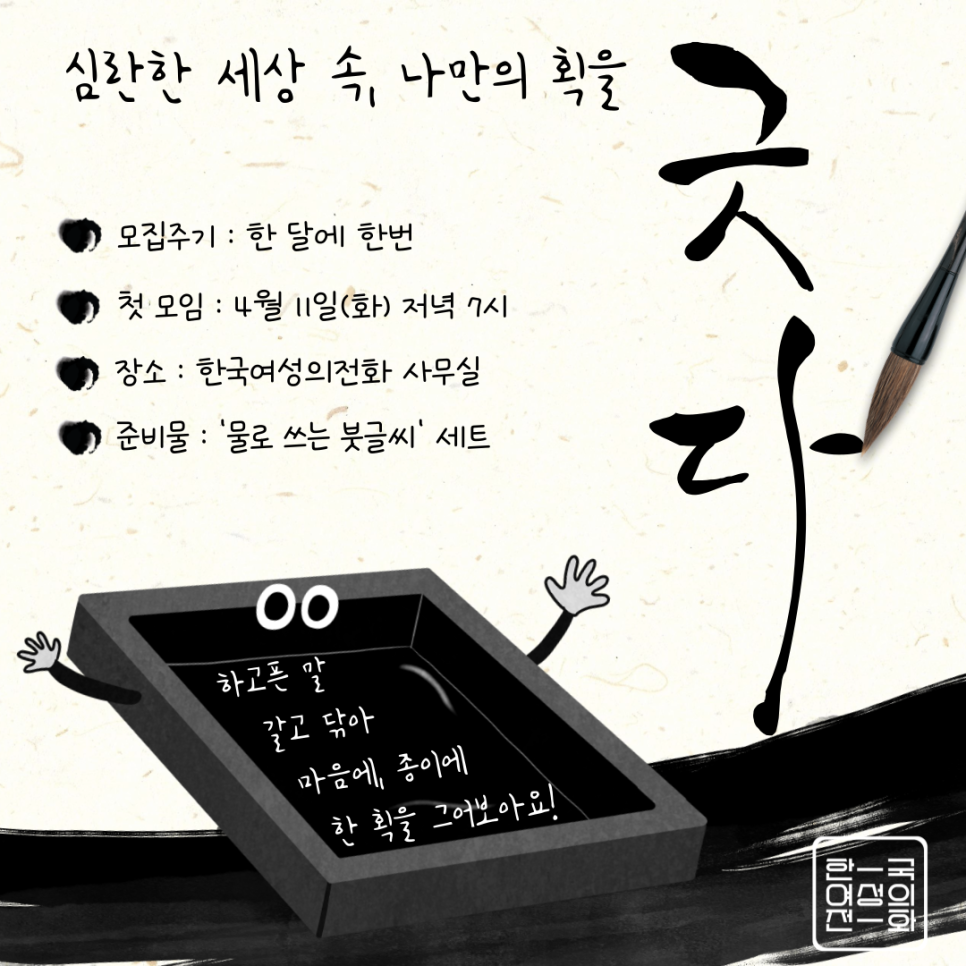 심란한 세상 속, 나만의 획을
긋다
모집주기 : 한 달에 한번
첫 모임 : 4월 11일(화) 저녁 7시
장소 : 한국여성의전화 사무실
준비물 : '물로 쓰는 붓글씨' 세트
하고픈 말
갈고 닦아
마음에, 종이에
한 획을 그어보아요!
한국
여성의
전화